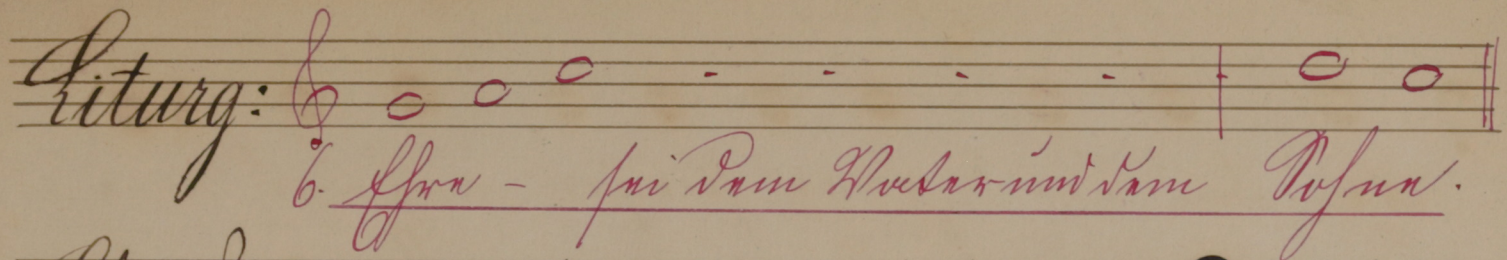 Liturg:
6. Ehre - sei dem Vater und dem Sohne.